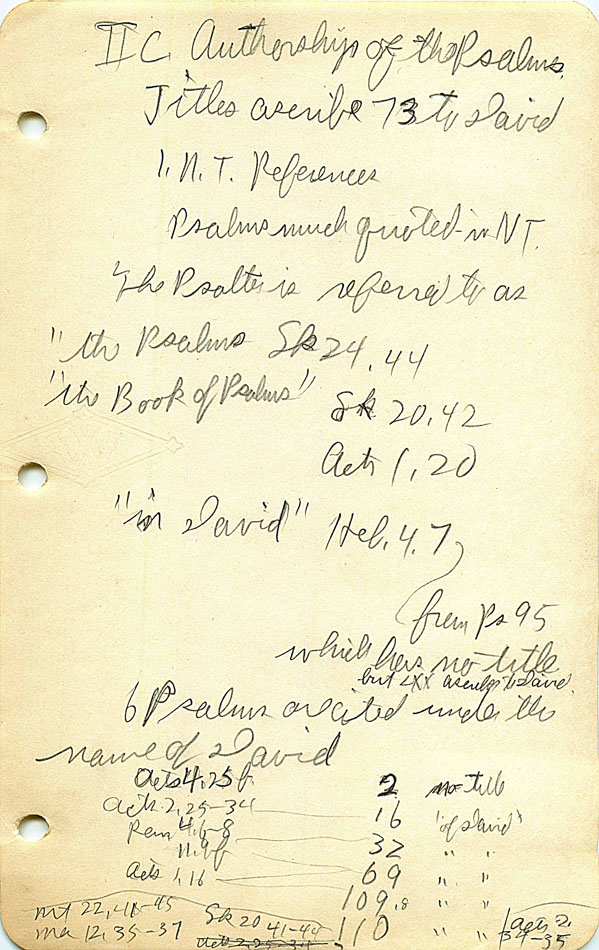 II C. Authorship of the Psalms.
Titles ascribe 73 to David
1. N. T. References
Psalms much quoted in NT.
The Psalter is referred to as
"the Psalms Lk 24.44
"the Book of Psalms"
Lk 20,42
Acts 1,20
"in David" Heb. 4.7
from Ps 95
which has no title
but LXX ascribes to David.
6 Psalms are cited under the
name of David
Acts 4.25f 2 no title
Acts 2,25-34 16 "of David"
Rom 4.6-8 32 " "
11.9f 69 " "
Acts 1,16 109.8 " "
Mt 22,41-45 Lk 20 41-44 110 " " Acts 2,
Ma 12,35-37 Acts 2,25-34 34-35